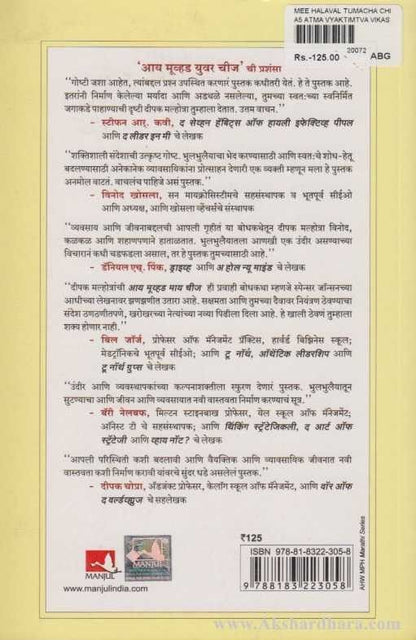 MEE HALAVAL TUMACHA CHI
A5 ATMA VYAKTIMTVA VIKAS
20072
Rs.-125.00 ABG
'आय मूव्हड युवर चीज' ची प्रशंसा
"गोष्टी जशा आहेत, त्यांबद्दल प्रश्न उपस्थित करणारं पुस्तक कधीतरी येतं. हे ते पुस्तक आहे.
इतरांनी निर्माण केलेल्या मर्यादा आणि अडथळे नसलेल्या, तुमच्या स्वतःच्या स्वनिर्मित
जगाकडे पाहाण्याची दृष्टी दीपक मल्होत्रा तुम्हाला देतात. उत्तम वाचन."
– स्टीफन आर. कवी, द सेव्हन हॅबिट्स ऑफ हायली इफेक्टिव्ह पीपल
आणि द लीडर इन मी चे लेखक
"शक्तिशाली संदेशाची उत्कृष्ट गोष्ट. भुलभुलैयाचा भेद करण्यासाठी आणि स्वतःचे शोध-हेतू
बदलण्यासाठी अनेकानेक व्यावसायिकांना प्रोत्साहन देणारी एक व्यक्ती म्हणून मला हे पुस्तक
अनमोल वाटतं. वाचलंच पाहिजे असं पुस्तक."
– विनोद खोसला, सन मायक्रोसिस्टीमचे सहसंस्थापक व भूतपूर्व सीईओ
आणि अध्यक्ष, आणि खोसला व्हेंचर्सचे संस्थापक
"व्यवसाय आणि जीवनाबद्दलची आपली गृहीतं या बोधकथेतून दीपक मल्होत्रा विनोद,
कळकळ आणि शहाणपणाने हाताळतात. भुलभुलैयातला आणखी एक उंदीर असण्याच्या
विचारानं कधी धडपडला असाल, तर हे पुस्तक तुमच्यासाठी आहे."
– डॅनियल एच्. पिंक, ड्राइव्ह आणि अ होल न्यू माईंड चे लेखक
"दीपक मल्होत्रांची आय मूव्हड माय चीज ही प्रवाही बोधकथा म्हणजे स्पेन्सर जॉन्सनच्या
आधीच्या लेखनावर झणझणीत उतारा आहे. सक्षमता आणि तुमच्या दैवावर नियंत्रण ठेवण्याचा
संदेश ठणठणीतपणे, खरोखरच्या नेत्यांच्या नव्या पिढीला दिला आहे. हे खाली ठेवणं तुम्हाला
शक्य होणार नाही."
– बिल जॉर्ज, प्रोफेसर ऑफ मॅनेजमेंट प्रॅक्टिस, हार्वर्ड बिझिनेस स्कूल;
मेडट्रॉनिकचे भूतपूर्व सीईओ; आणि ट्रू नॉर्थ, ऑथेंटिक लीडरशिप आणि
ट्रू नॉर्थ ग्रुप्स चे लेखक
"उंदीर आणि व्यवस्थापकांच्या कल्पनाशक्तीला स्फुरण देणारं पुस्तक. भुलभुलैयातून
सुटण्याचा आणि जीवन आणि व्यवसायात नवी वास्तवता निर्माण करण्याचं सूत्र."
– बॅरी नेलबफ, मिल्टन स्टाइनबाख प्रोफेसर, येल स्कूल ऑफ मॅनेजमेंट;
ऑनेस्ट टी चे सहसंस्थापक; आणि थिंकिंग स्ट्रॅटेजिकली, द आर्ट ऑफ
स्ट्रॅटेजी आणि व्हाय नॉट? चे लेखक
"आपली परिस्थिती कशी बदलावी आणि वैयक्तिक आणि व्यावसायिक जीवनात नवी
वास्तवता कशी निर्माण करावी यांवरचे सुंदर धडे असलेलं पुस्तक."
– दीपक चोप्रा, अॅडजंक्ट प्रोफेसर, केलॉग स्कूल ऑफ मॅनेजमेंट, आणि वॉर ऑफ
द वर्ल्डव्ह्यूज चे सहलेखक
₹125
ISBN 978-81-8322-305-8
9 788183 223058
AHW MPH Marathi Series
MANJUL
www.manjulindia.com
www.Akshardhara.com